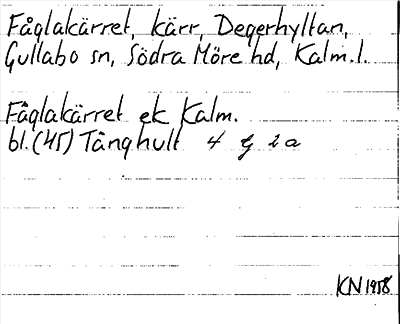 Fåglakärret, kärr, Degerhyltan,
Gullabo sn, Södra Möre hd, Kalm.l.
Fåglakärret ek Kalm.
bl.(45) Tånghult 4 G 2a
KN 1958